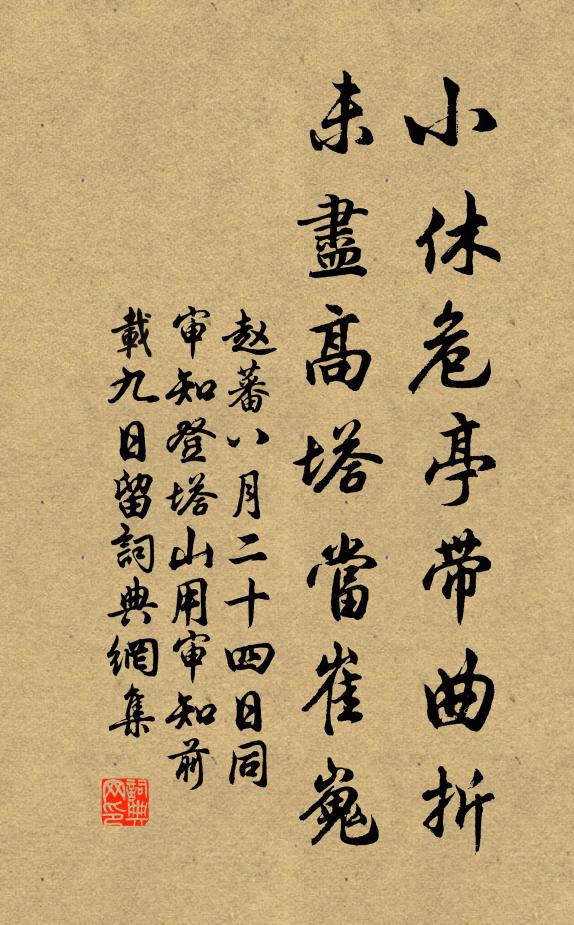 小休危亭带曲折
未盡高塔當崔嵬
赵蕃八月二十四日同
审知登塔山用审知前
載九日留詞典網集
詞典网印